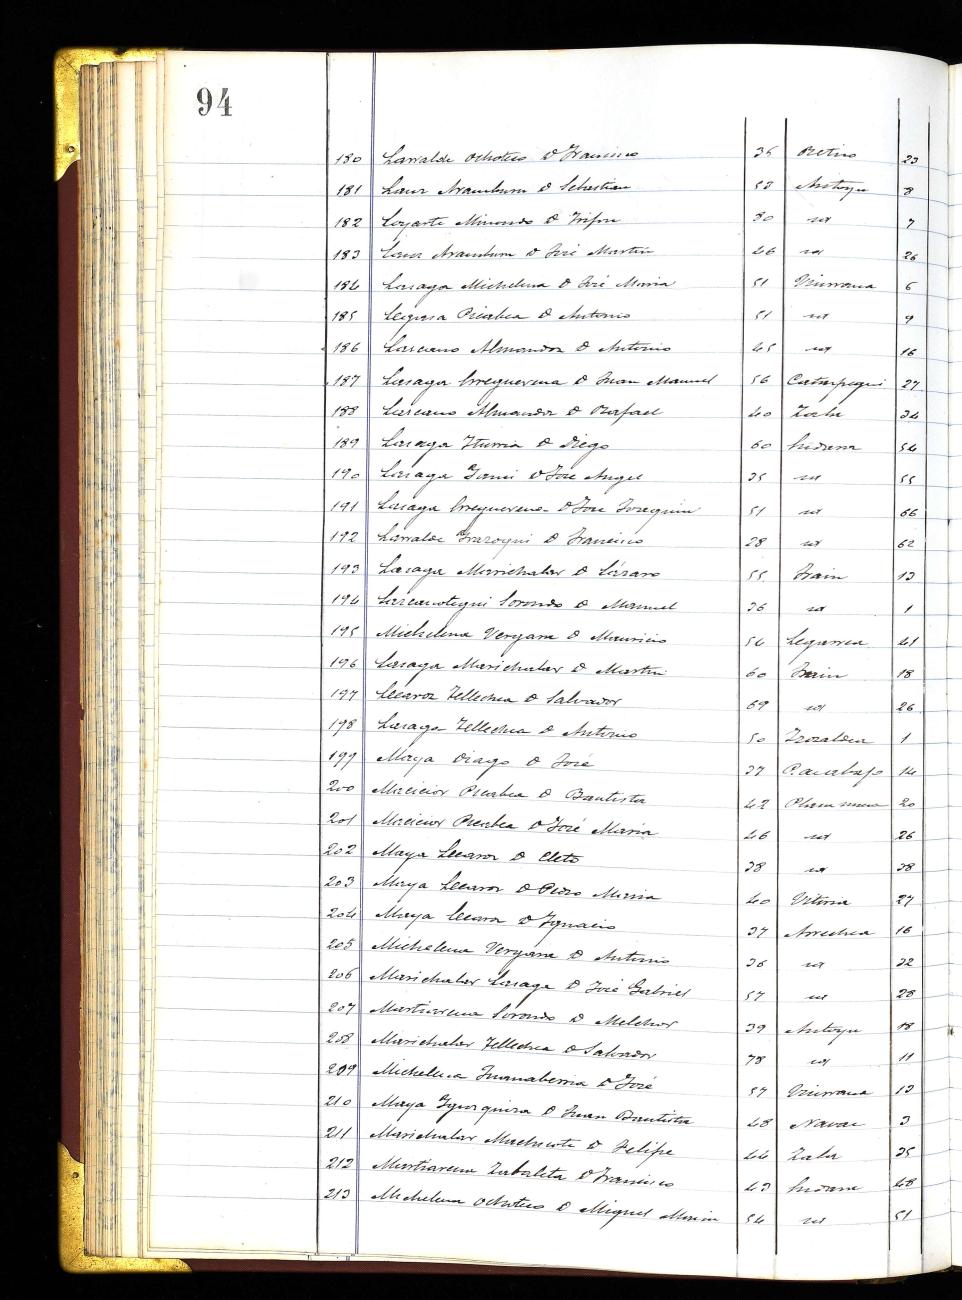 94
180 Larralde Ochoteco D Francisco 36 Retiro 23
181 Lanz Aramburu D Sebastian 53 Antoyu 8
182 Loyarte Minondo D Trifon 30 id 7
183 Lanz Aramburu D José Martin 46 id 26
184 Lasaga Michelena D José Maria 51 Vinirana 6
185 Legasa Picabea D Antonio 51 id 9
186 Lascano Almandoz D Antonio 45 id 16
187 Lasaga Irreguerena D Juan Manuel 56 27
188 Lascano Almandoz D Rafael 40 Zala 34
189 Lasaga Iturria D Diego 60 54
190 Lasaga D José Angel 35 id 55
191 Lasaga Irreguerena D José Joaquin 51 id 66
192 Larralde Irazoqui D Francisco 28 id 62
193 Lasaga Marichalar D Lázaro 55 Irain 13
194 Lazcanotegui Lorondo D Manuel 36 id 1
195 Michelena Vergara D Mauricio 54 Legarrea 41
196 Lasaga Marichalar D Martin 60 Irain 18
197 Lecaroz Tellechea D Salvador 69 id 26
198 Lasaga Tellechea D Antonio 50 1
199 Maya Oiago D José 37 14
200 Macicior Picabea D Bautista 42 20
201 Macicior Picabea D José Maria 46 id 26
202 Maya Lecaroz D Cleto 38 id 38
203 Maya Lecaroz D Pedro Maria 40 Vitoria 27
204 Maya Lecaroz D Ignacio 37 Arrechea 16
205 Michelena Vergara D Antonio 36 id 32
206 Marichalar Lasaga D José Gabriel 57 id 28
207 Martiarena Lorondo D Melchor 39 Antoyu 18
208 Marichalar Tellechea D Salvador 78 id 11
209 Michelena Juanaberria D José 57 Vinirana 13
210 Maya D Juan Bautista 48 3
211 Marichalar Machicote D Felipe 44 Zala 35
212 Martiarena Zabaleta D Francisco 43 48
213 Michelena Ochoteco D Miguel Maria 54 id 51